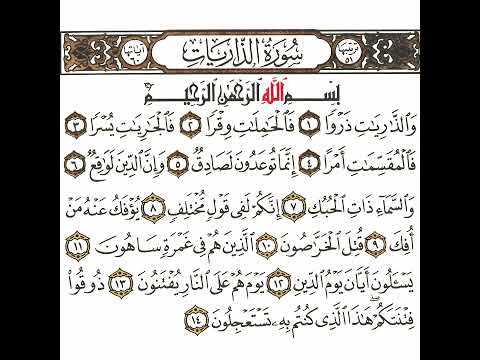 ترتيبها ٥١ سُورَةُ الذَّارِيَاتِ آياتها ٦٠
بِسْمِ ٱللَّهِ ٱلرَّحْمَٰنِ ٱلرَّحِيمِ
وَٱلذَّٰرِيَٰتِ ذَرْوًا ١ فَٱلْحَٰمِلَٰتِ وِقْرًا ٢ فَٱلْجَٰرِيَٰتِ يُسْرًا ٣
فَٱلْمُقَسِّمَٰتِ أَمْرًا ٤ إِنَّمَا تُوعَدُونَ لَصَادِقٌ ٥ وَإِنَّ ٱلدِّينَ لَوَٰقِعٌ ٦
وَٱلسَّمَآءِ ذَاتِ ٱلْحُبُكِ ٧ إِنَّكُمْ لَفِى قَوْلٍ مُّخْتَلِفٍ ٨ يُؤْفَكُ عَنْهُ مَنْ
أُفِكَ ٩ قُتِلَ ٱلْخَرَّٰصُونَ ١٠ ٱلَّذِينَ هُمْ فِى غَمْرَةٍ سَاهُونَ ١١
يَسْـَٔلُونَ أَيَّانَ يَوْمُ ٱلدِّينِ ١٢ يَوْمَ هُمْ عَلَى ٱلنَّارِ يُفْتَنُونَ ١٣ ذُوقُوا۟
فِتْنَتَكُمْ هَٰذَا ٱلَّذِى كُنتُم بِهِۦ تَسْتَعْجِلُونَ ١٤